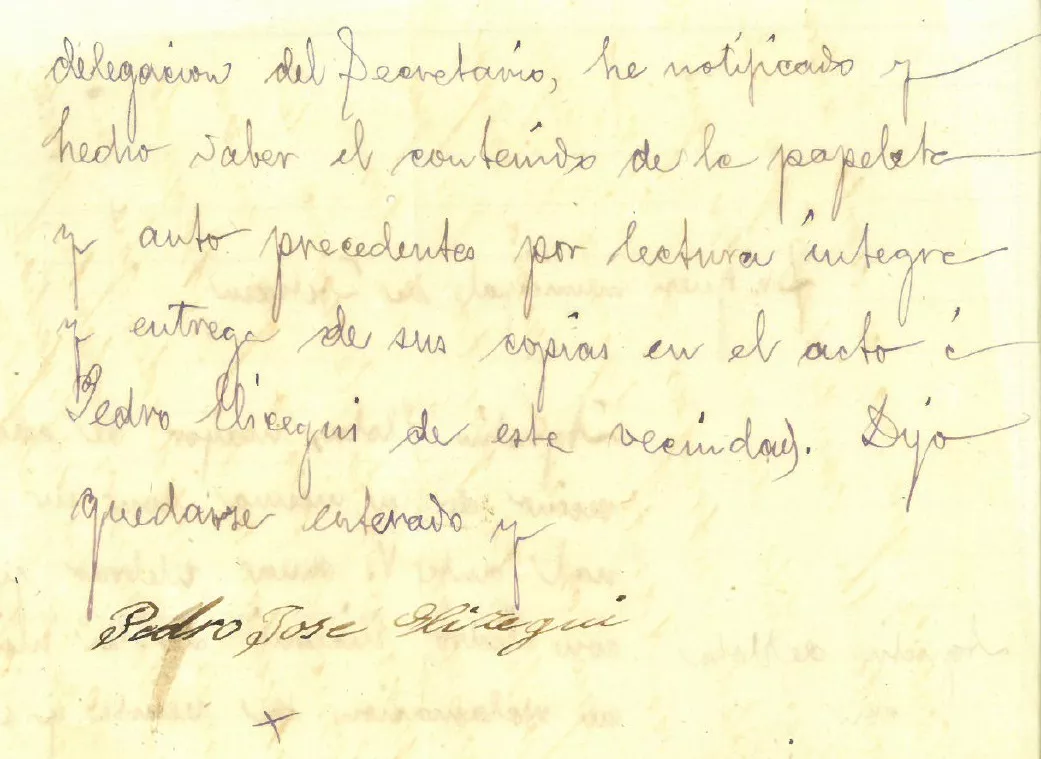 delegacion del Secretario, he notificado y
hecho saber el contenido de la papeleta
y auto precedentes por lectura íntegra
y entrega de sus copias en el acto á
Pedro Elicegui de esta vecindad. Dijo
quedarse enterado y
Pedro Jose Elizegui